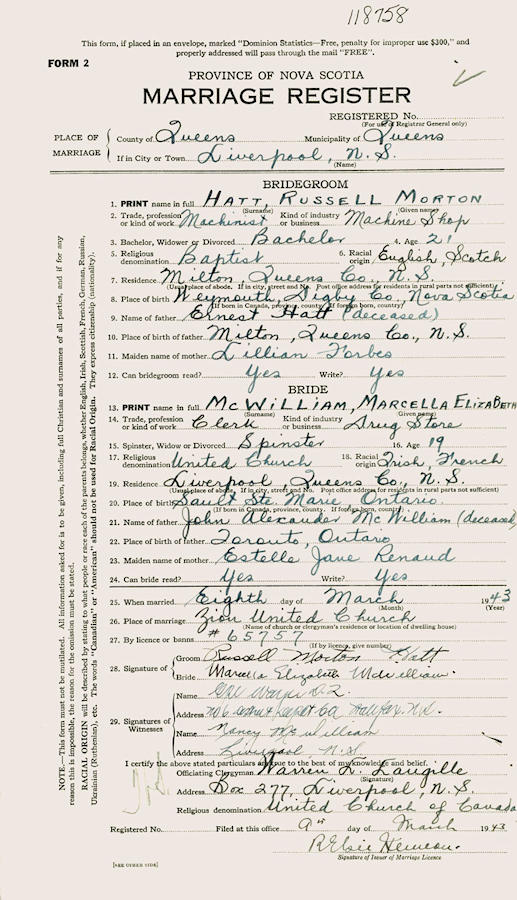 118758
This form, if placed in an envelope, marked "Dominion Statistics—Free, penalty for improper use $300," and
properly addressed will pass through the mail "FREE".
FORM 2
PROVINCE OF NOVA SCOTIA
MARRIAGE REGISTER
REGISTERED No.
(For use of Registrar General only)
PLACE OF MARRIAGE
County of Queens Municipality of Queens
If in City or Town Liverpool, N.S.
(Name)
BRIDEGROOM
1. PRINT name in full HATT, RUSSELL MORTON
(Surname) (Given name)
2. Trade, profession or kind of work Machinist Kind of industry or business Machine Shop
3. Bachelor, Widower or Divorced Bachelor 4. Age 21
5. Religious denomination Baptist 6. Racial origin English, Scotch
7. Residence Milton, Queens Co., N.S.
(Usual place of abode. If in city, street and No. Post office address for residents in rural parts not sufficient)
8. Place of birth Weymouth, Digby Co., Nova Scotia
(If born in Canada, province, county. If foreign born, country)
9. Name of father Ernest Hatt (deceased)
10. Place of birth of father Milton, Queens Co., N.S.
11. Maiden name of mother Lillian Forbes
12. Can bridegroom read? Yes Write? Yes
BRIDE
13. PRINT name in full MCWILLIAM, MARCELLA ELIZABETH
(Surname) (Given name)
14. Trade, profession or kind of work Clerk Kind of industry or business Drug Store
15. Spinster, Widow or Divorced Spinster 16. Age 19
17. Religious denomination United Church 18. Racial origin Irish, French
19. Residence Liverpool, Queens Co., N.S.
(Usual place of abode. If in city, street and No. Post office address for residents in rural parts not sufficient)
20. Place of birth Sault Ste. Marie Ontario
(If born in Canada, province, county. If foreign born, country)
21. Name of father John Alexander McWilliam (deceased)
22. Place of birth of father Toronto, Ontario
23. Maiden name of mother Estelle Jane Renaud
24. Can bride read? Yes Write? Yes
25. When married Eighth day of March 1943
(Month) (Year)
26. Place of marriage Zion United Church
(Name of church or clergyman's residence or location of dwelling house)
27. By licence or banns # 65757
(If by licence, give number)
28. Signature of
Groom Russell Morton Hatt
Bride Marcella Elizabeth McWilliam
29. Signatures of Witnesses
Name
Address Halifax. N.S.
Name Nancy McWilliam
Address Liverpool N.S.
I certify the above stated particulars are true to the best of my knowledge and belief.
Officiating Clergyman Warren D. Langille
(Signature)
Address Box 277, Liverpool, N.S.
Religious denomination United Church of Canada
Registered No. Filed at this office 9th day of March 1943
R Elsie
Signature of Issuer of Marriage Licence
[SEE OTHER SIDE]
NOTE.—This form must not be mutilated. All information asked for is to be given, including full Christian and surnames of all parties, and if for any
reason this is impossible, the reason for the omission must be stated.
RACIAL ORIGIN will be described by stating to what people or race each of the parents belongs, whether English, Irish, Scottish, French, German, Russian,
Ukrainian (Ruthenian), etc. The words "Canadian" or "American" should not be used for Racial Origin. They express citizenship (nationality).